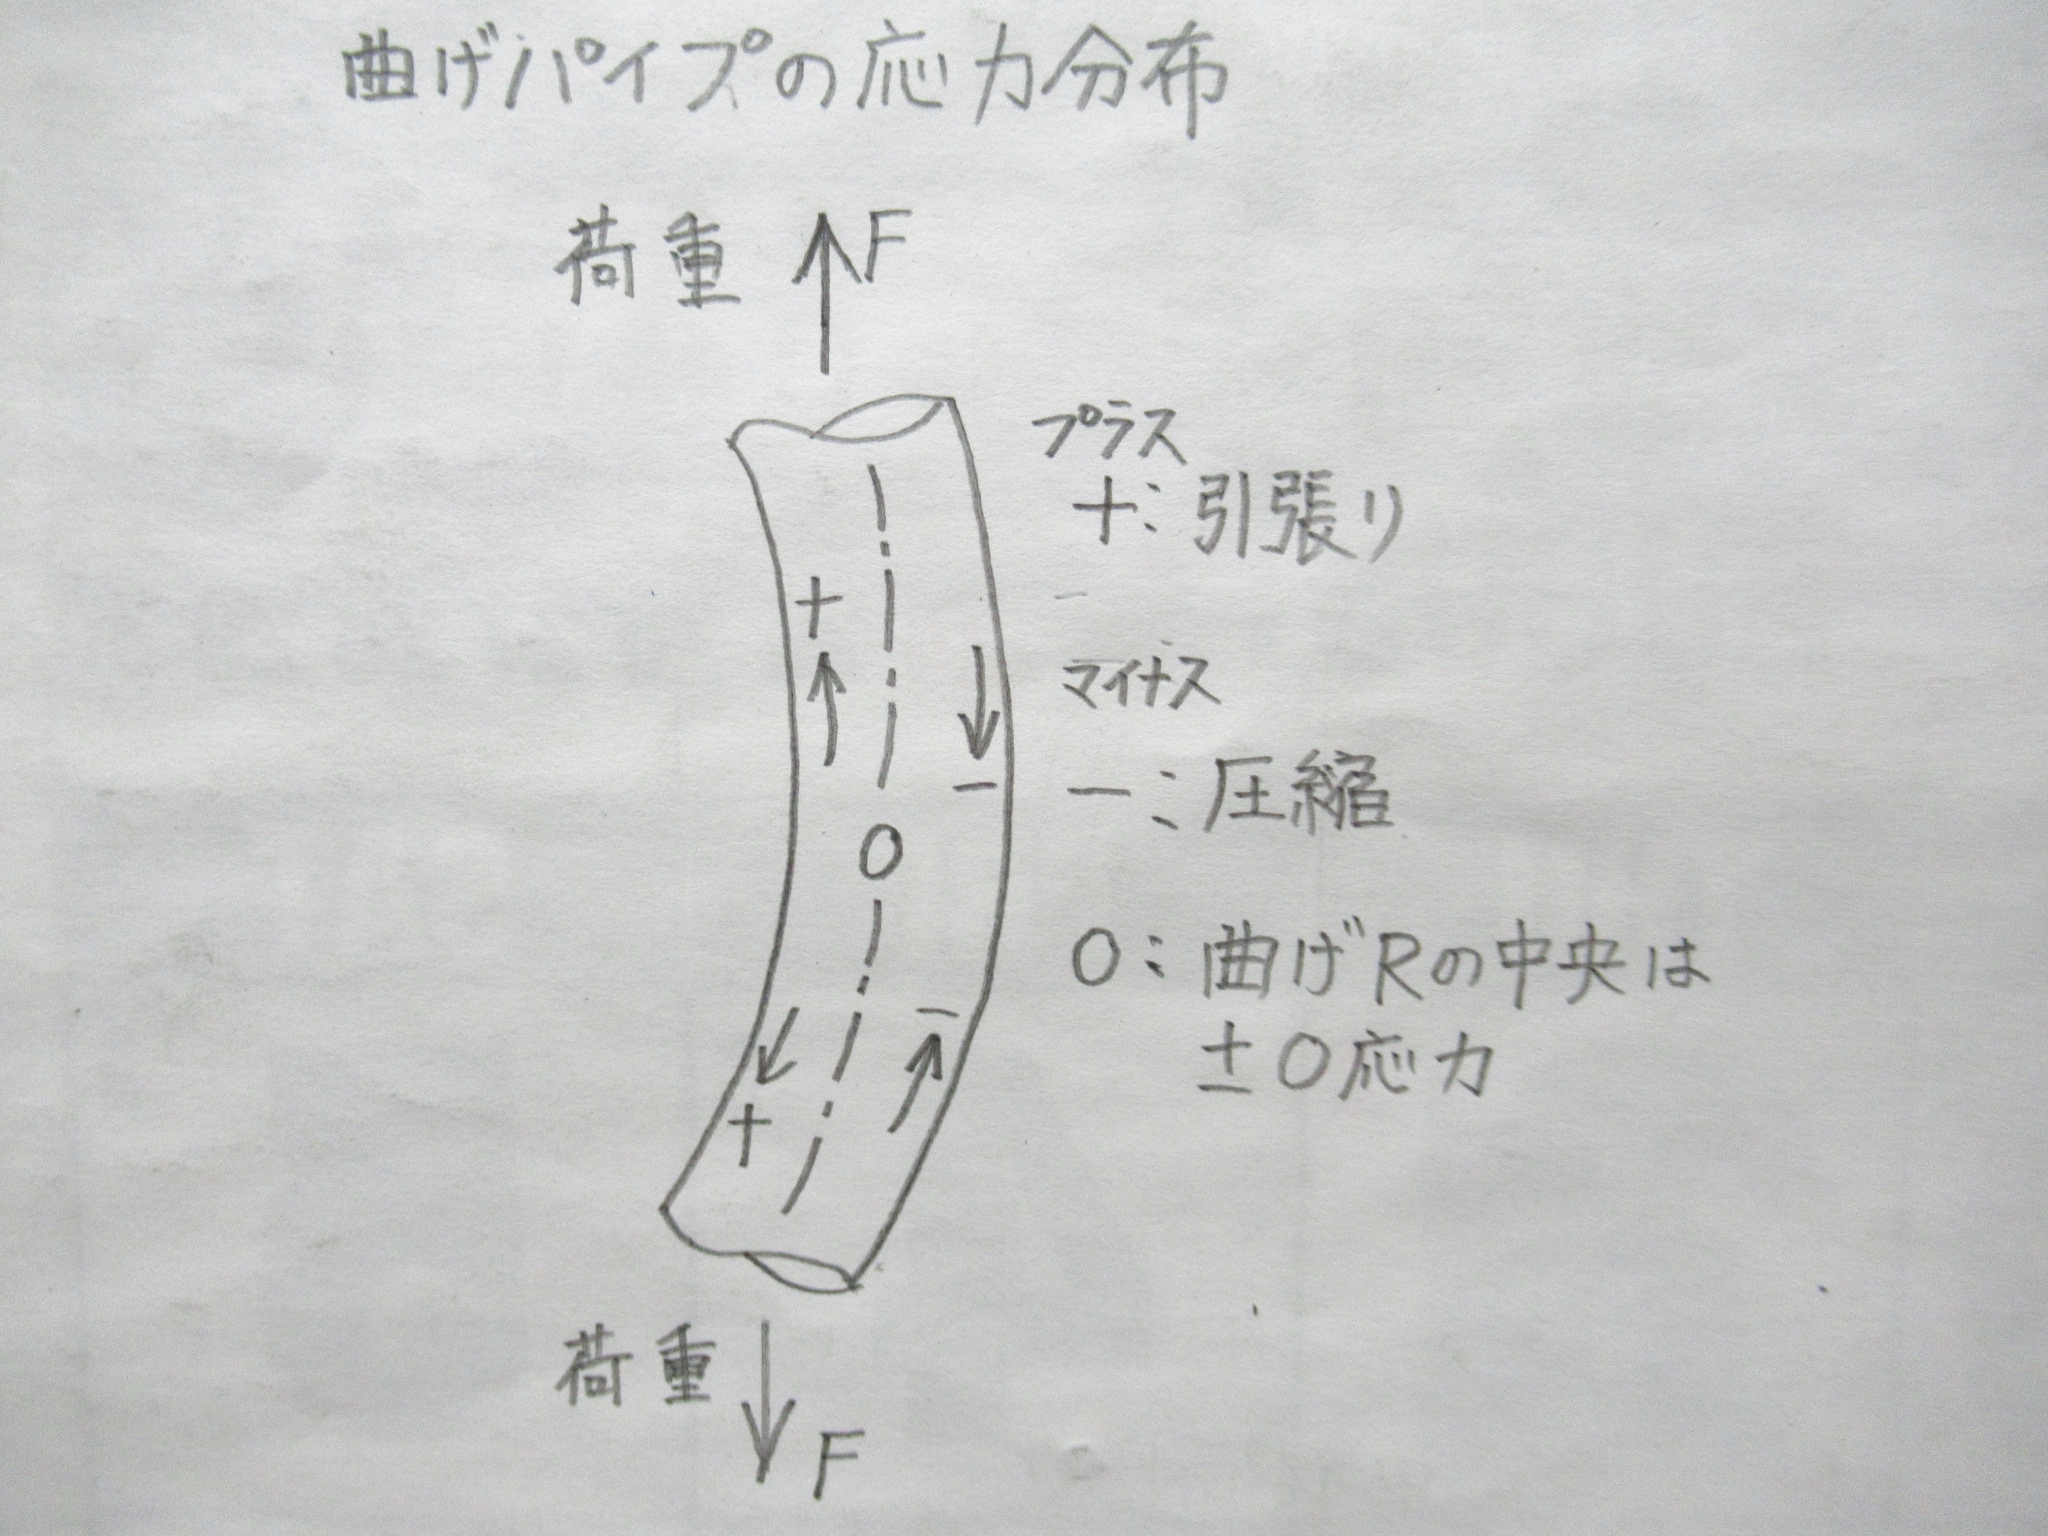 曲げパイプの応力分布
荷重 F
プラス
+:引張り
+
マイナス
−
−:圧縮
0
0:曲げRの中央は
−
±0応力
+
荷重
F